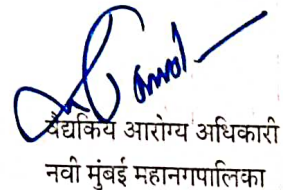 वैद्यकिय आरोग्य अधिकारी
नवी मुंबई महानगपालिका